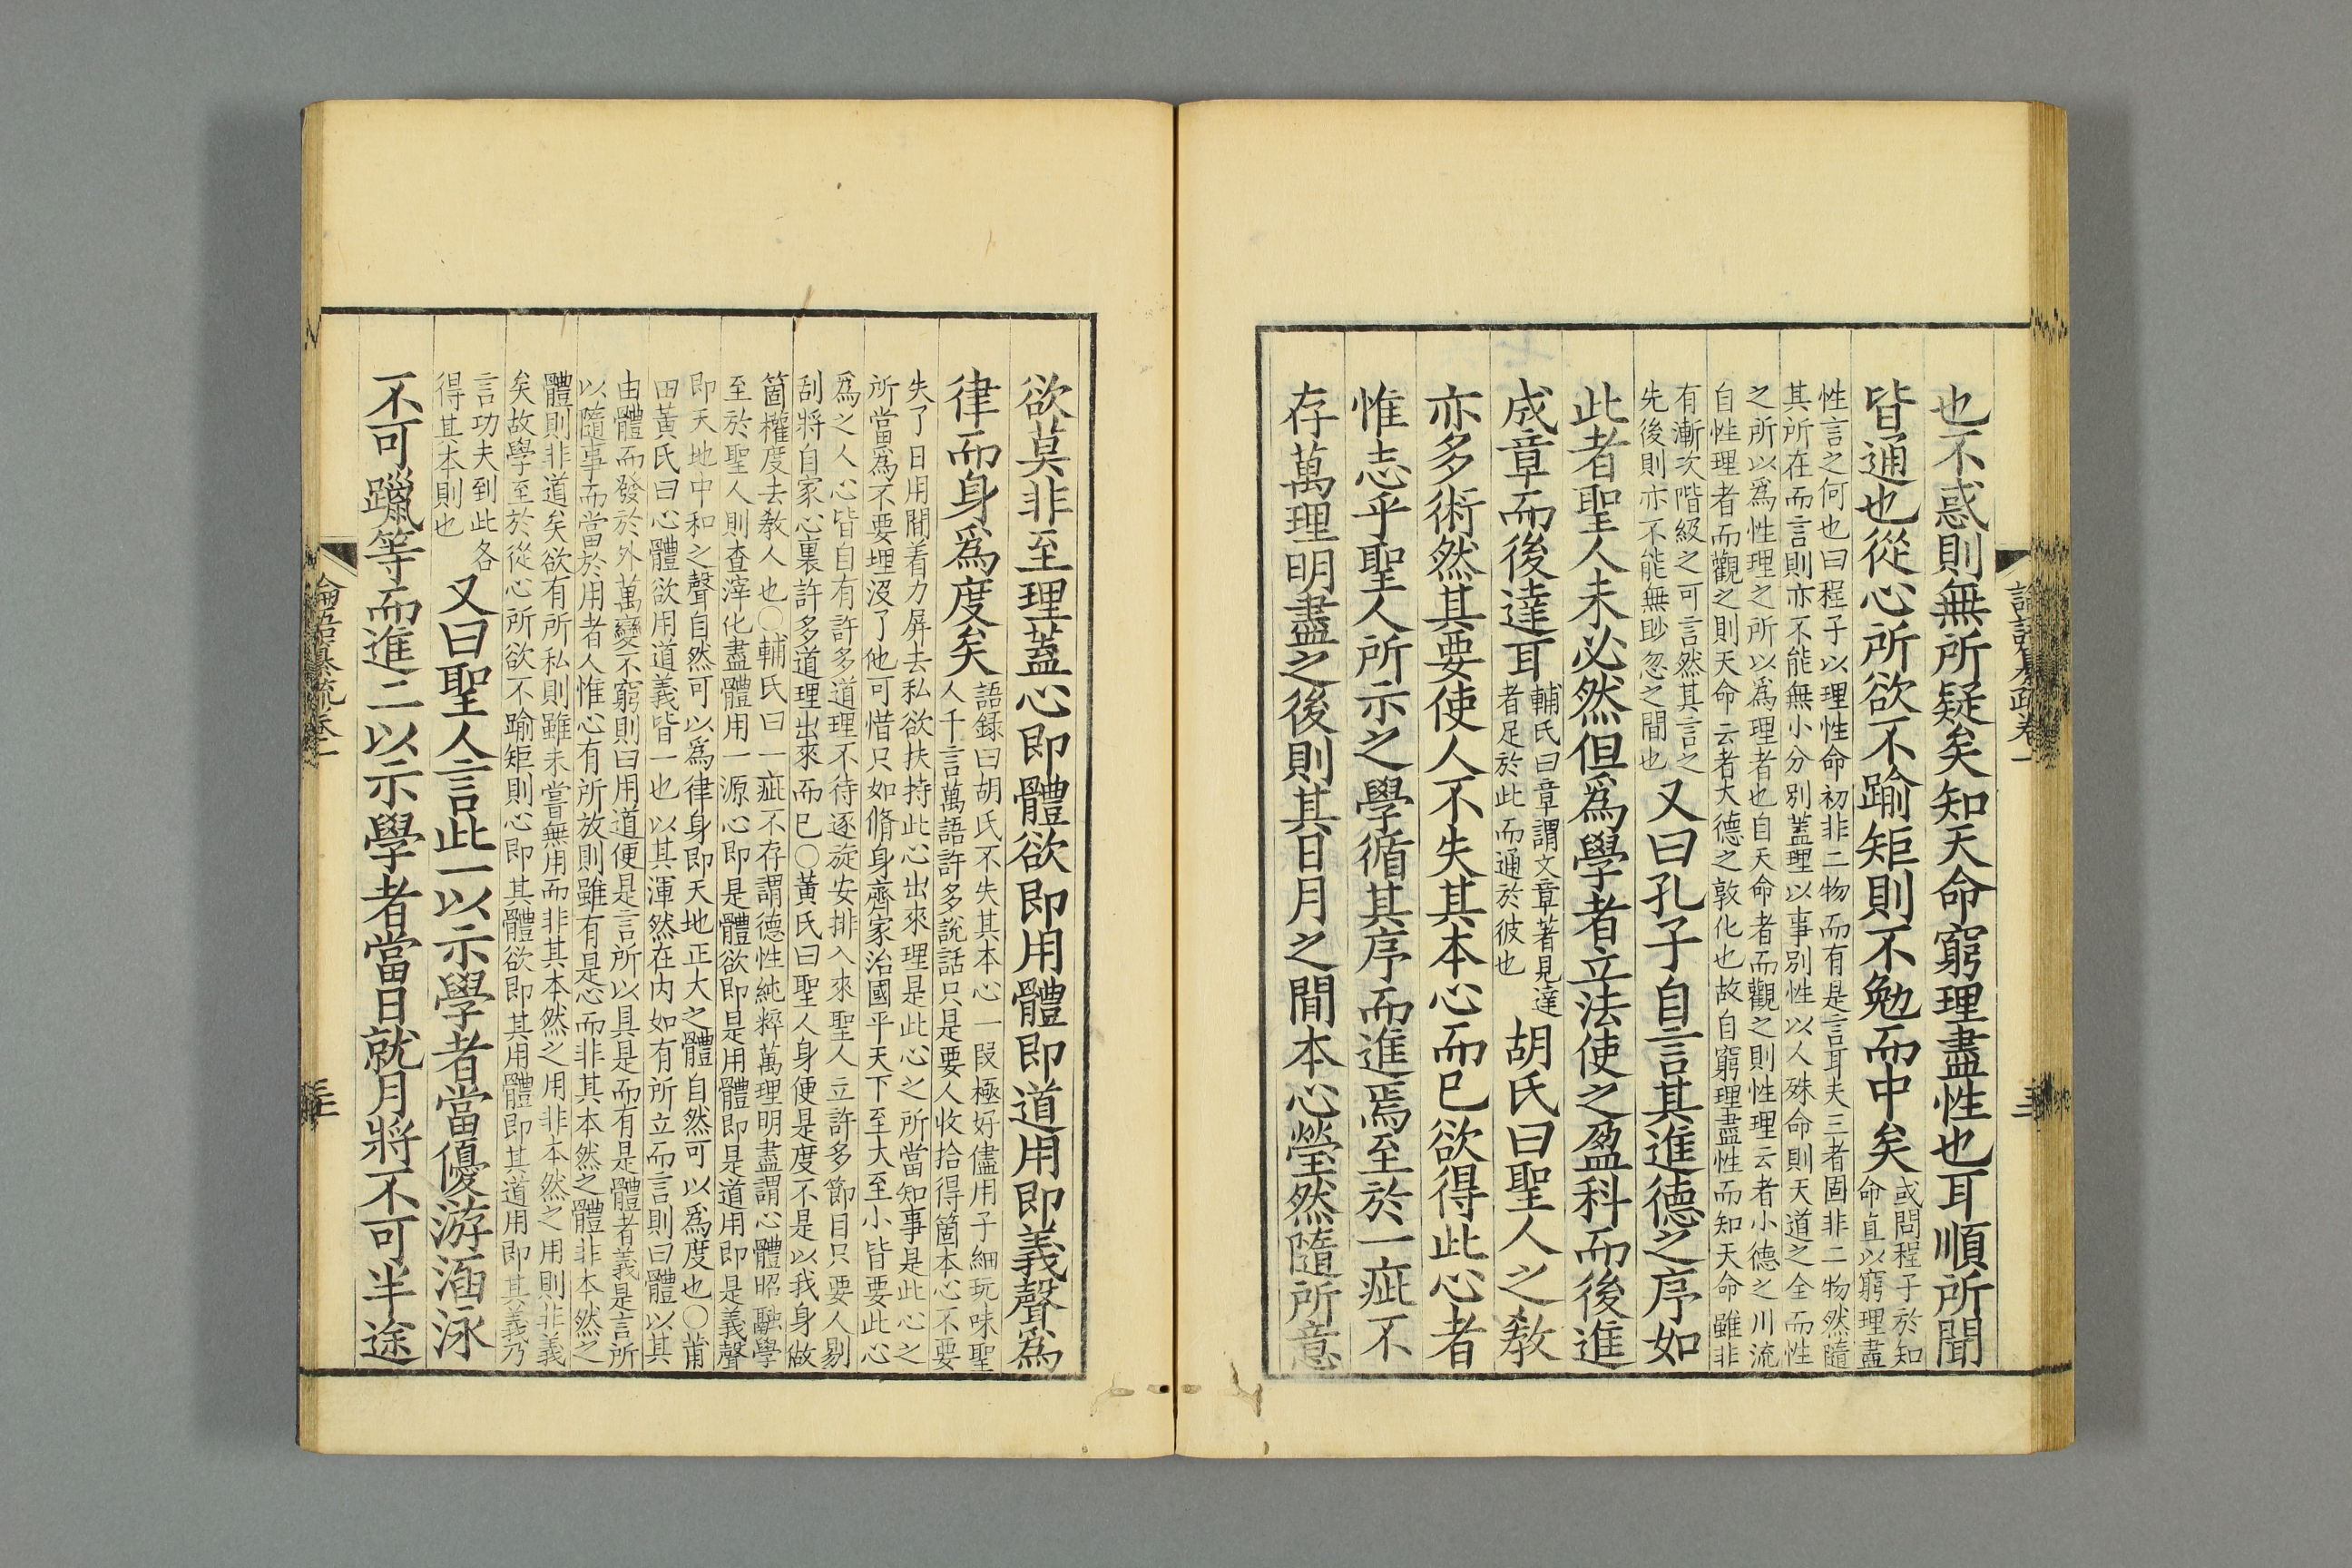 也不惑則無所疑矣知天命窮理盡性也耳順所聞
皆通也從心所欲不踰矩則不勉而中矣
或問程子於知
命直以窮理盡
性言之何也曰程子以理性命初非二物而有是言耳夫三者固非二物然隨
其所在而言則亦不能無小分別蓋理以事別性以人殊命則天道之全而性
之所以爲性理之所以爲理者也自天命者而觀之則性理云者小德之川流
自性理者而觀之則天命云者大德之敦化也故自窮理盡性而知天命雖非
有漸次階級之可言然其言之
先後則亦不能無眇忽之間也
又曰孔子自言其進德之序如
此者聖人未必然但爲學者立法使之盈科而後進
成章而後達耳
輔氏曰章謂文章著見達
者足於此而通於彼也
胡氏曰聖人之敎
亦多術然其要使人不失其本心而已欲得此心者
惟志乎聖人所示之學循其序而進焉至於一疵不
存萬理明盡之後則其日月之間本心瑩然隨所意
論語纂疏卷一
欲莫非至理蓋心即體欲即用體即道用即義聲爲
律而身爲度矣
語録曰胡氏不失其本心一段極好儘用子細玩味聖
人千言萬語許多說話只是要人收拾得箇本心不要
失了日用間着力屏去私欲扶持此心出來理是此心之所當知事是此心之
所當爲不要埋沒了他可惜只如脩身齊家治國平天下至大至小皆要此心
爲之人心皆自有許多道理不待逐旋安排入來聖人立許多節目只要人剔
刮將自家心裏許多道理出來而已○黃氏曰聖人身便是度不是以我身做
箇權度去敎人也○輔氏曰一疵不存謂德性純粹萬理明盡謂心體昭融學
至於聖人則查滓化盡體用一源心即是體欲即是用體即是道用即是義聲
即天地中和之聲自然可以爲律身即天地正大之體自然可以爲度也○莆
田黃氏曰心體欲用道義皆一也以其渾然在内如有所立而言則曰體以其
由體而發於外萬變不窮則曰用道便是言所以具是而有是體者義是言所
以隨事而當於用者人惟心有所放則雖有是心而非其本然之體非本然之
體則非道矣欲有所私則雖未嘗無用而非其本然之用非本然之用則非義
矣故學至於從心所欲不踰矩則心即其體欲即其用體即其道用即其義乃
言功夫到此各
得其本則也
又曰聖人言此一以示學者當優游涵泳
不可躐等而進二以示學者當日就月將不可半途
論語纂疏卷一